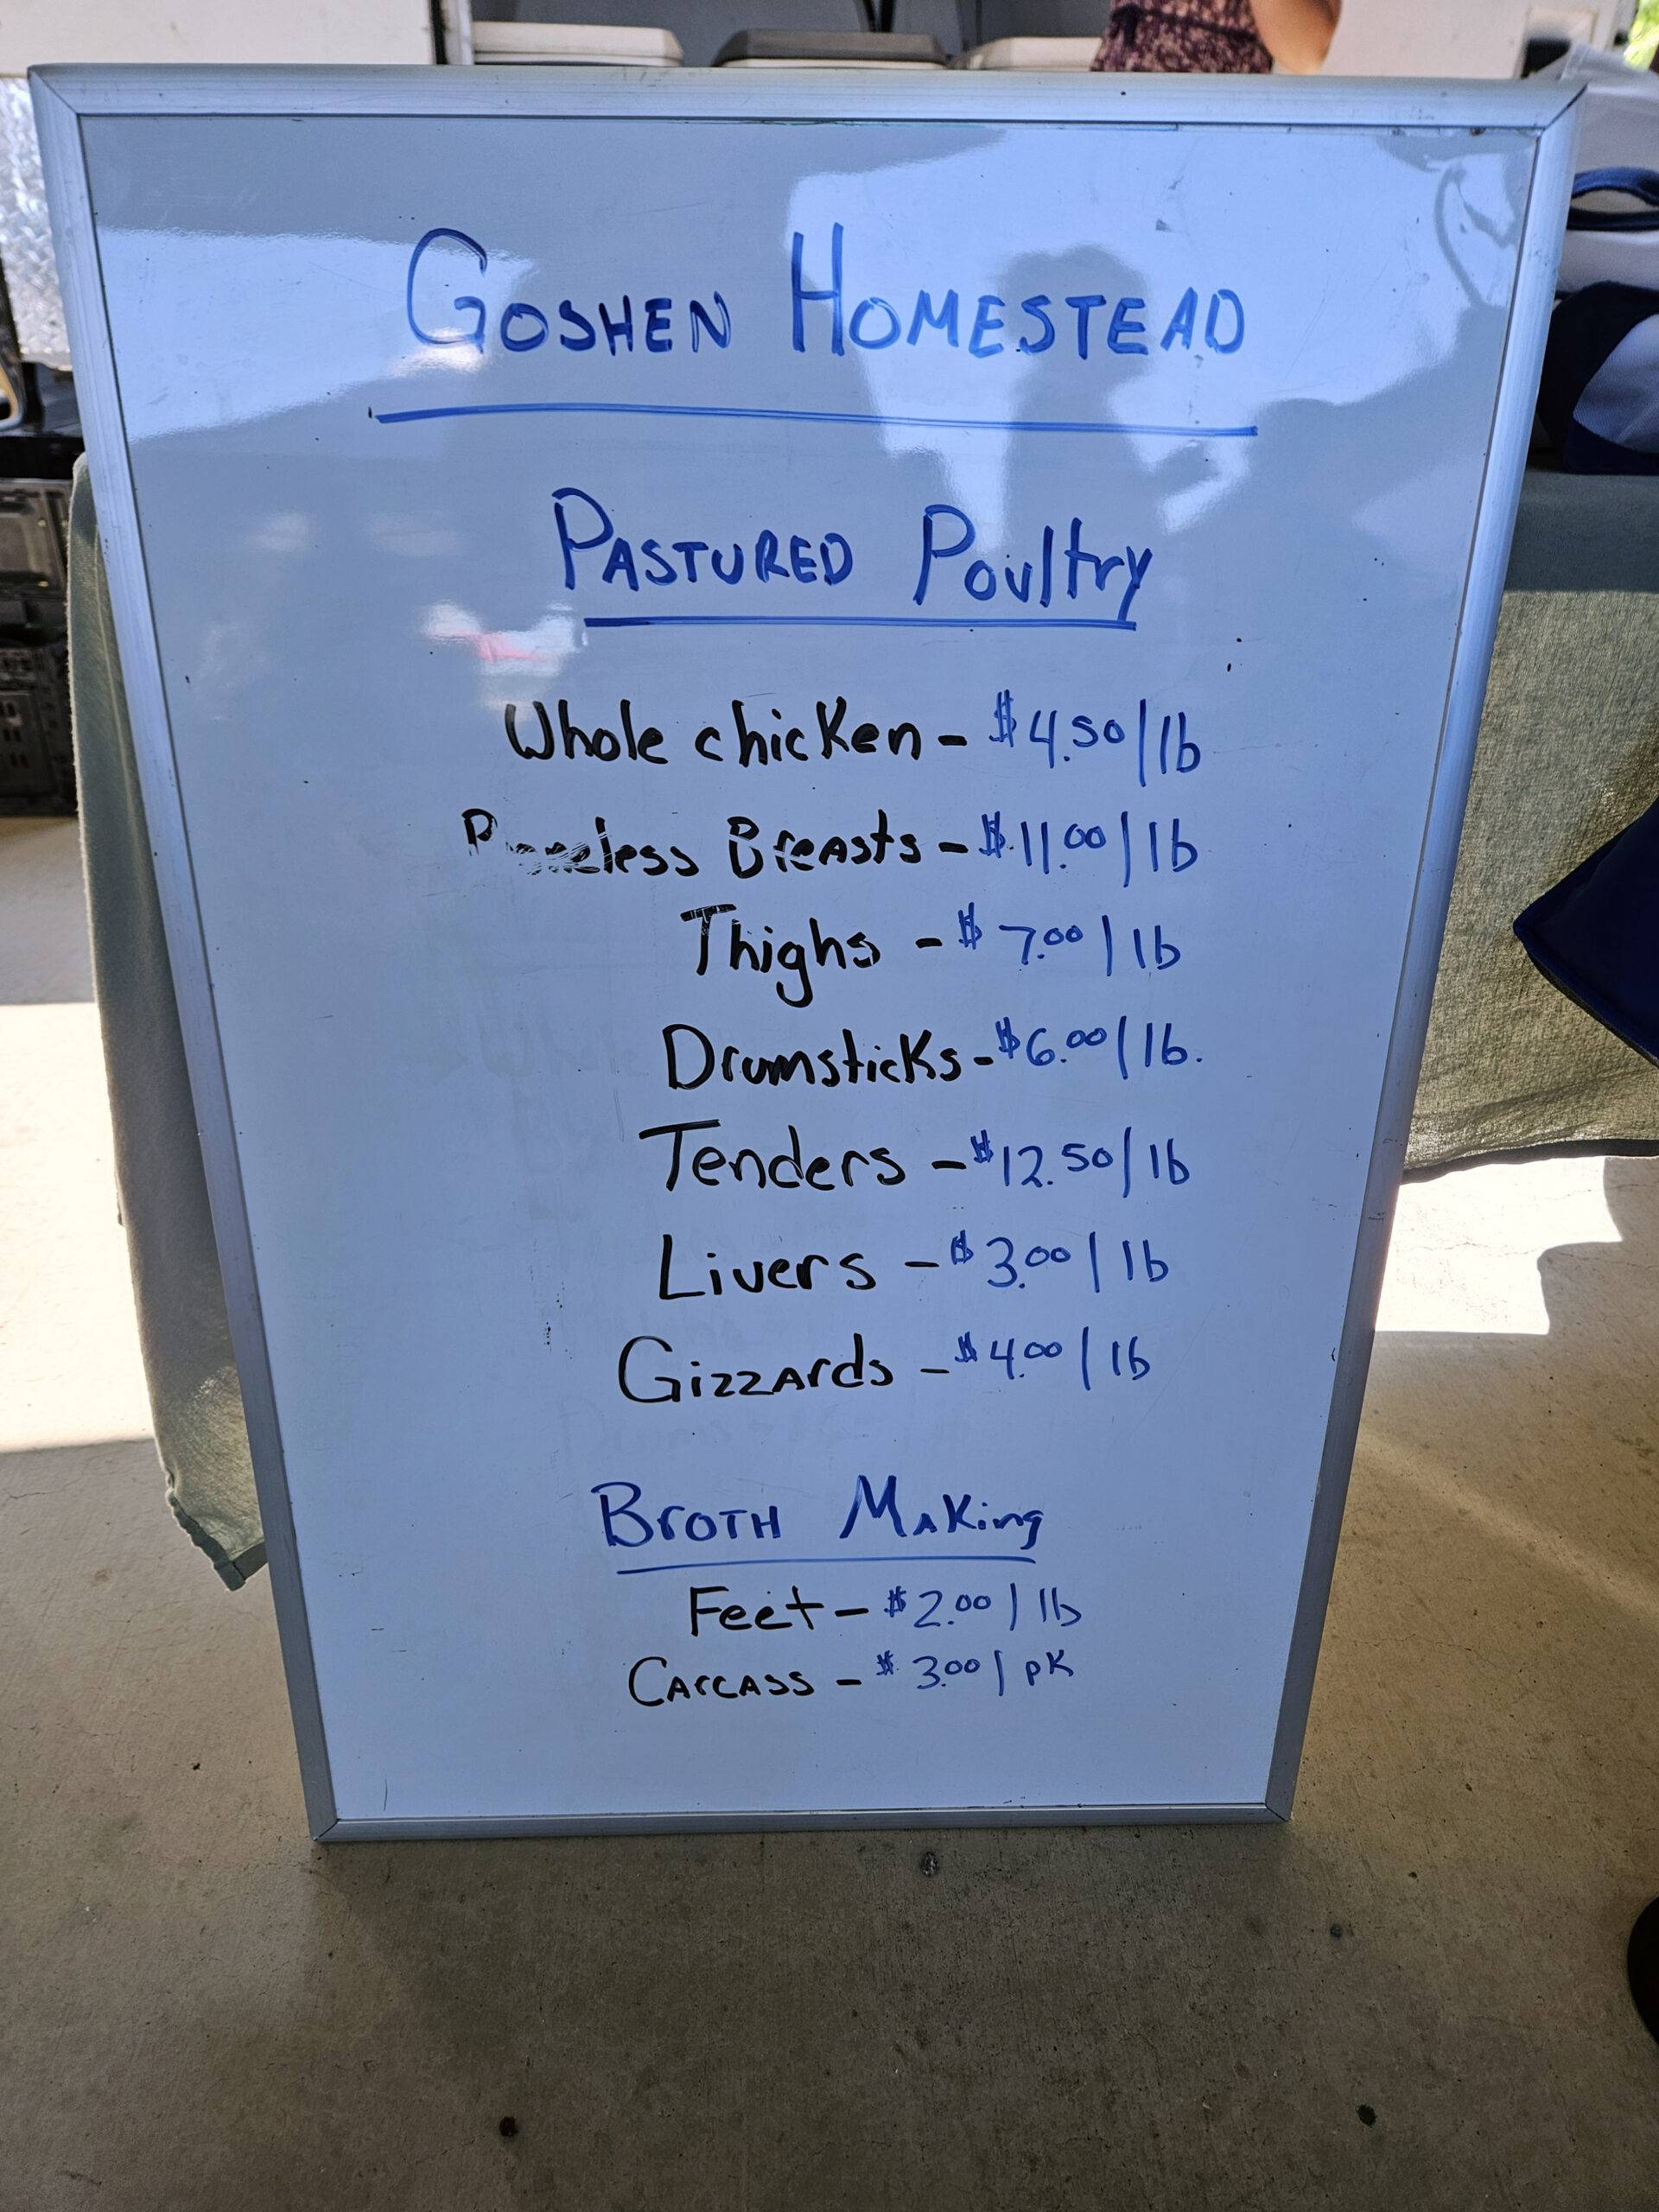 GOSHEN HOMESTEAD
PASTURED Poultry
Whole chicken - $4.50/lb
Boneless Breasts - $11.00/lb
Thighs - $7.00/lb
Drumsticks - $6.00/lb.
Tenders - $12.50/lb
Livers - $3.00/lb
Gizzards - $4.00/lb
Broth Making
Feet - $2.00/lb
Carcass - $3.00/pk